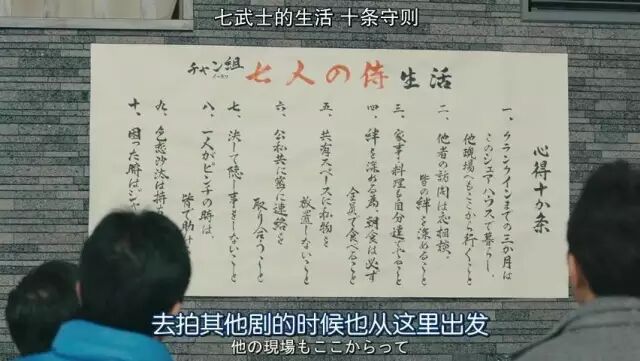 七武士的生活 十条守则
チャン組
七人の侍生活
心得十か条
一、クランクインまでの三か月は
このシェアハウスで暮らし、
他現場へもここから行くこと
二、他者の訪問は応相談、
皆の絆を深めること
三、家事・料理も自分達でやること
四、絆を深める為、朝食は必ず
全員で食べること
五、共有スペースに私物を
放置しないこと
六、公私共に密に連絡を
取り合うこと
七、決して隠し事をしないこと
八、一人がピンチの時は、
皆で助け
九、色恋沙汰は持ち
十、困った時は
去拍其他剧的时候也从这里出发
他の現場もここからって